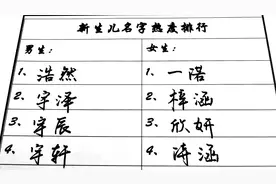 新生儿名字热度排行
男生： 女生：
1、浩然 1、一诺
2、宇泽 2、梓涵
3、宇辰 3、欣妍
4、宇轩 4、诗涵